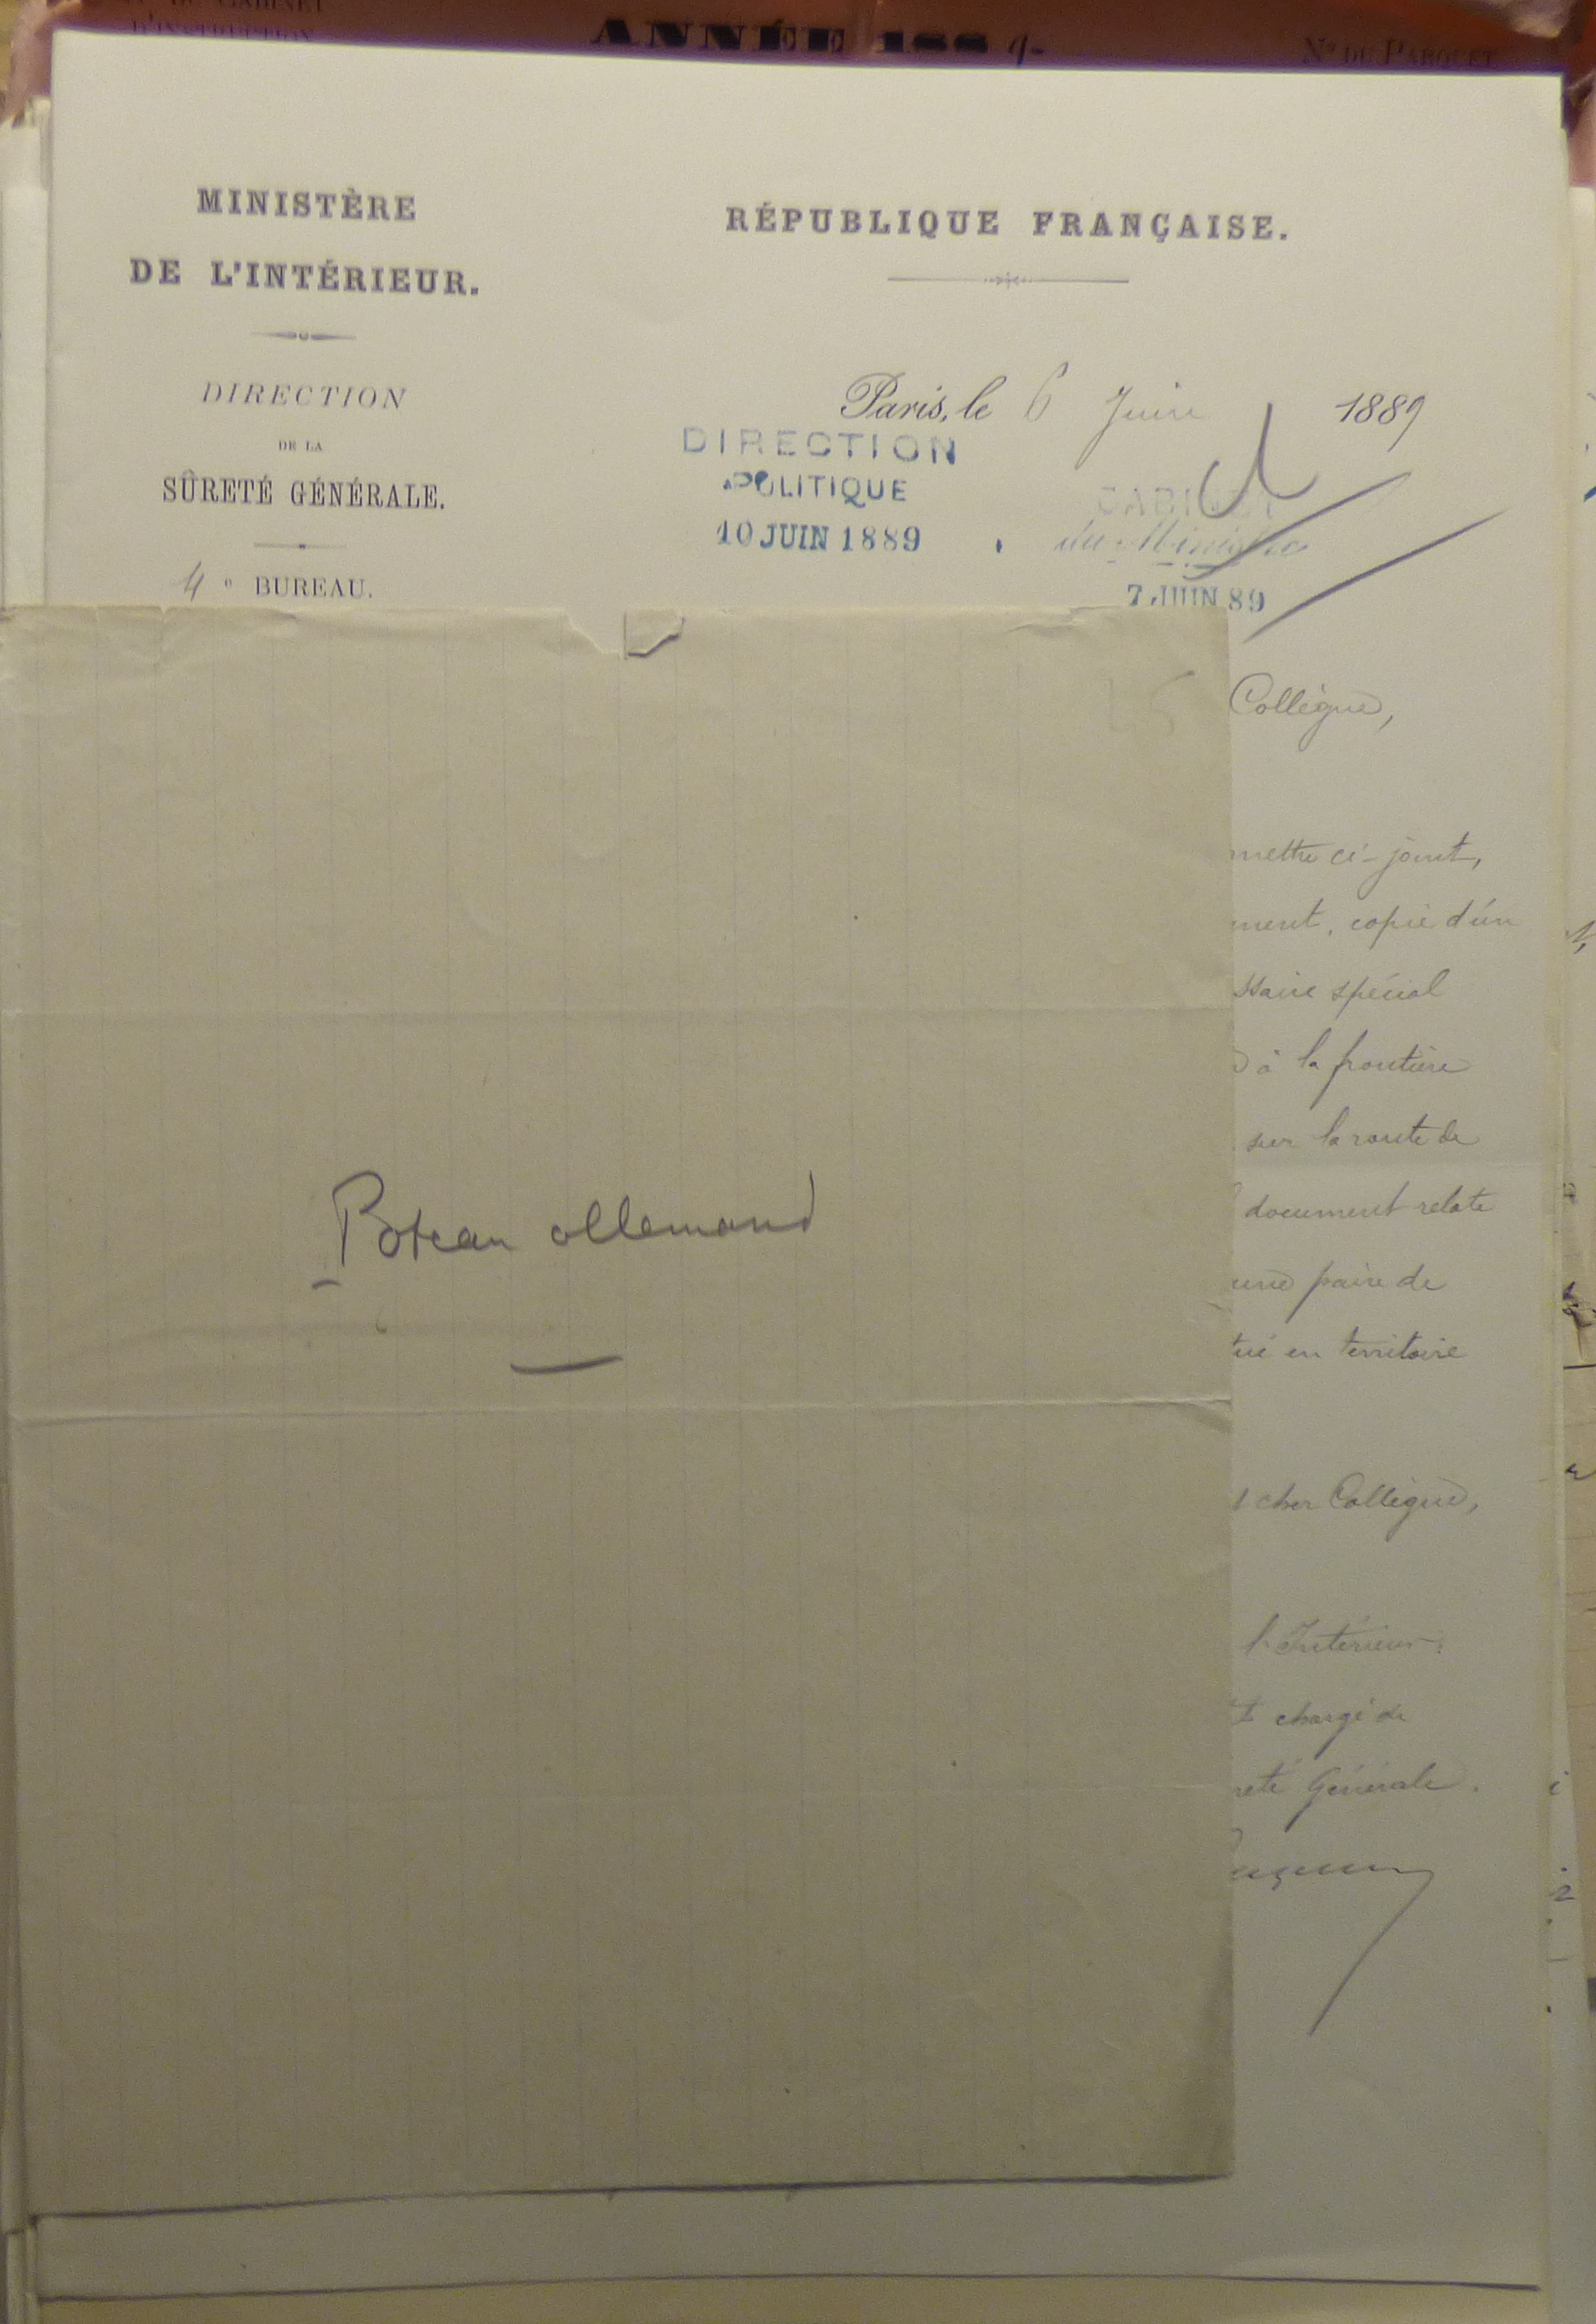 DU CABINET
D'INSTRUCTION
ANNÉE 1889
N° DU PARQUET
MINISTÈRE
DE L'INTÉRIEUR.
RÉPUBLIQUE FRANÇAISE.
DIRECTION
DE LA
SÛRETÉ GÉNÉRALE.
4e BUREAU.
Paris, le 6 Juin 1889
DIRECTION
POLITIQUE
10 JUIN 1889
CABINET
du Ministre
7 JUIN 89
Collègue,
mettre ci-joint,
ment, copie d'un
ssaire spécial
à la frontière
sur la route de
document relate
une paire de
tué en territoire
cher Collègue,
l'Intérieur.
chargé de
reté Générale.
Poteau allemand